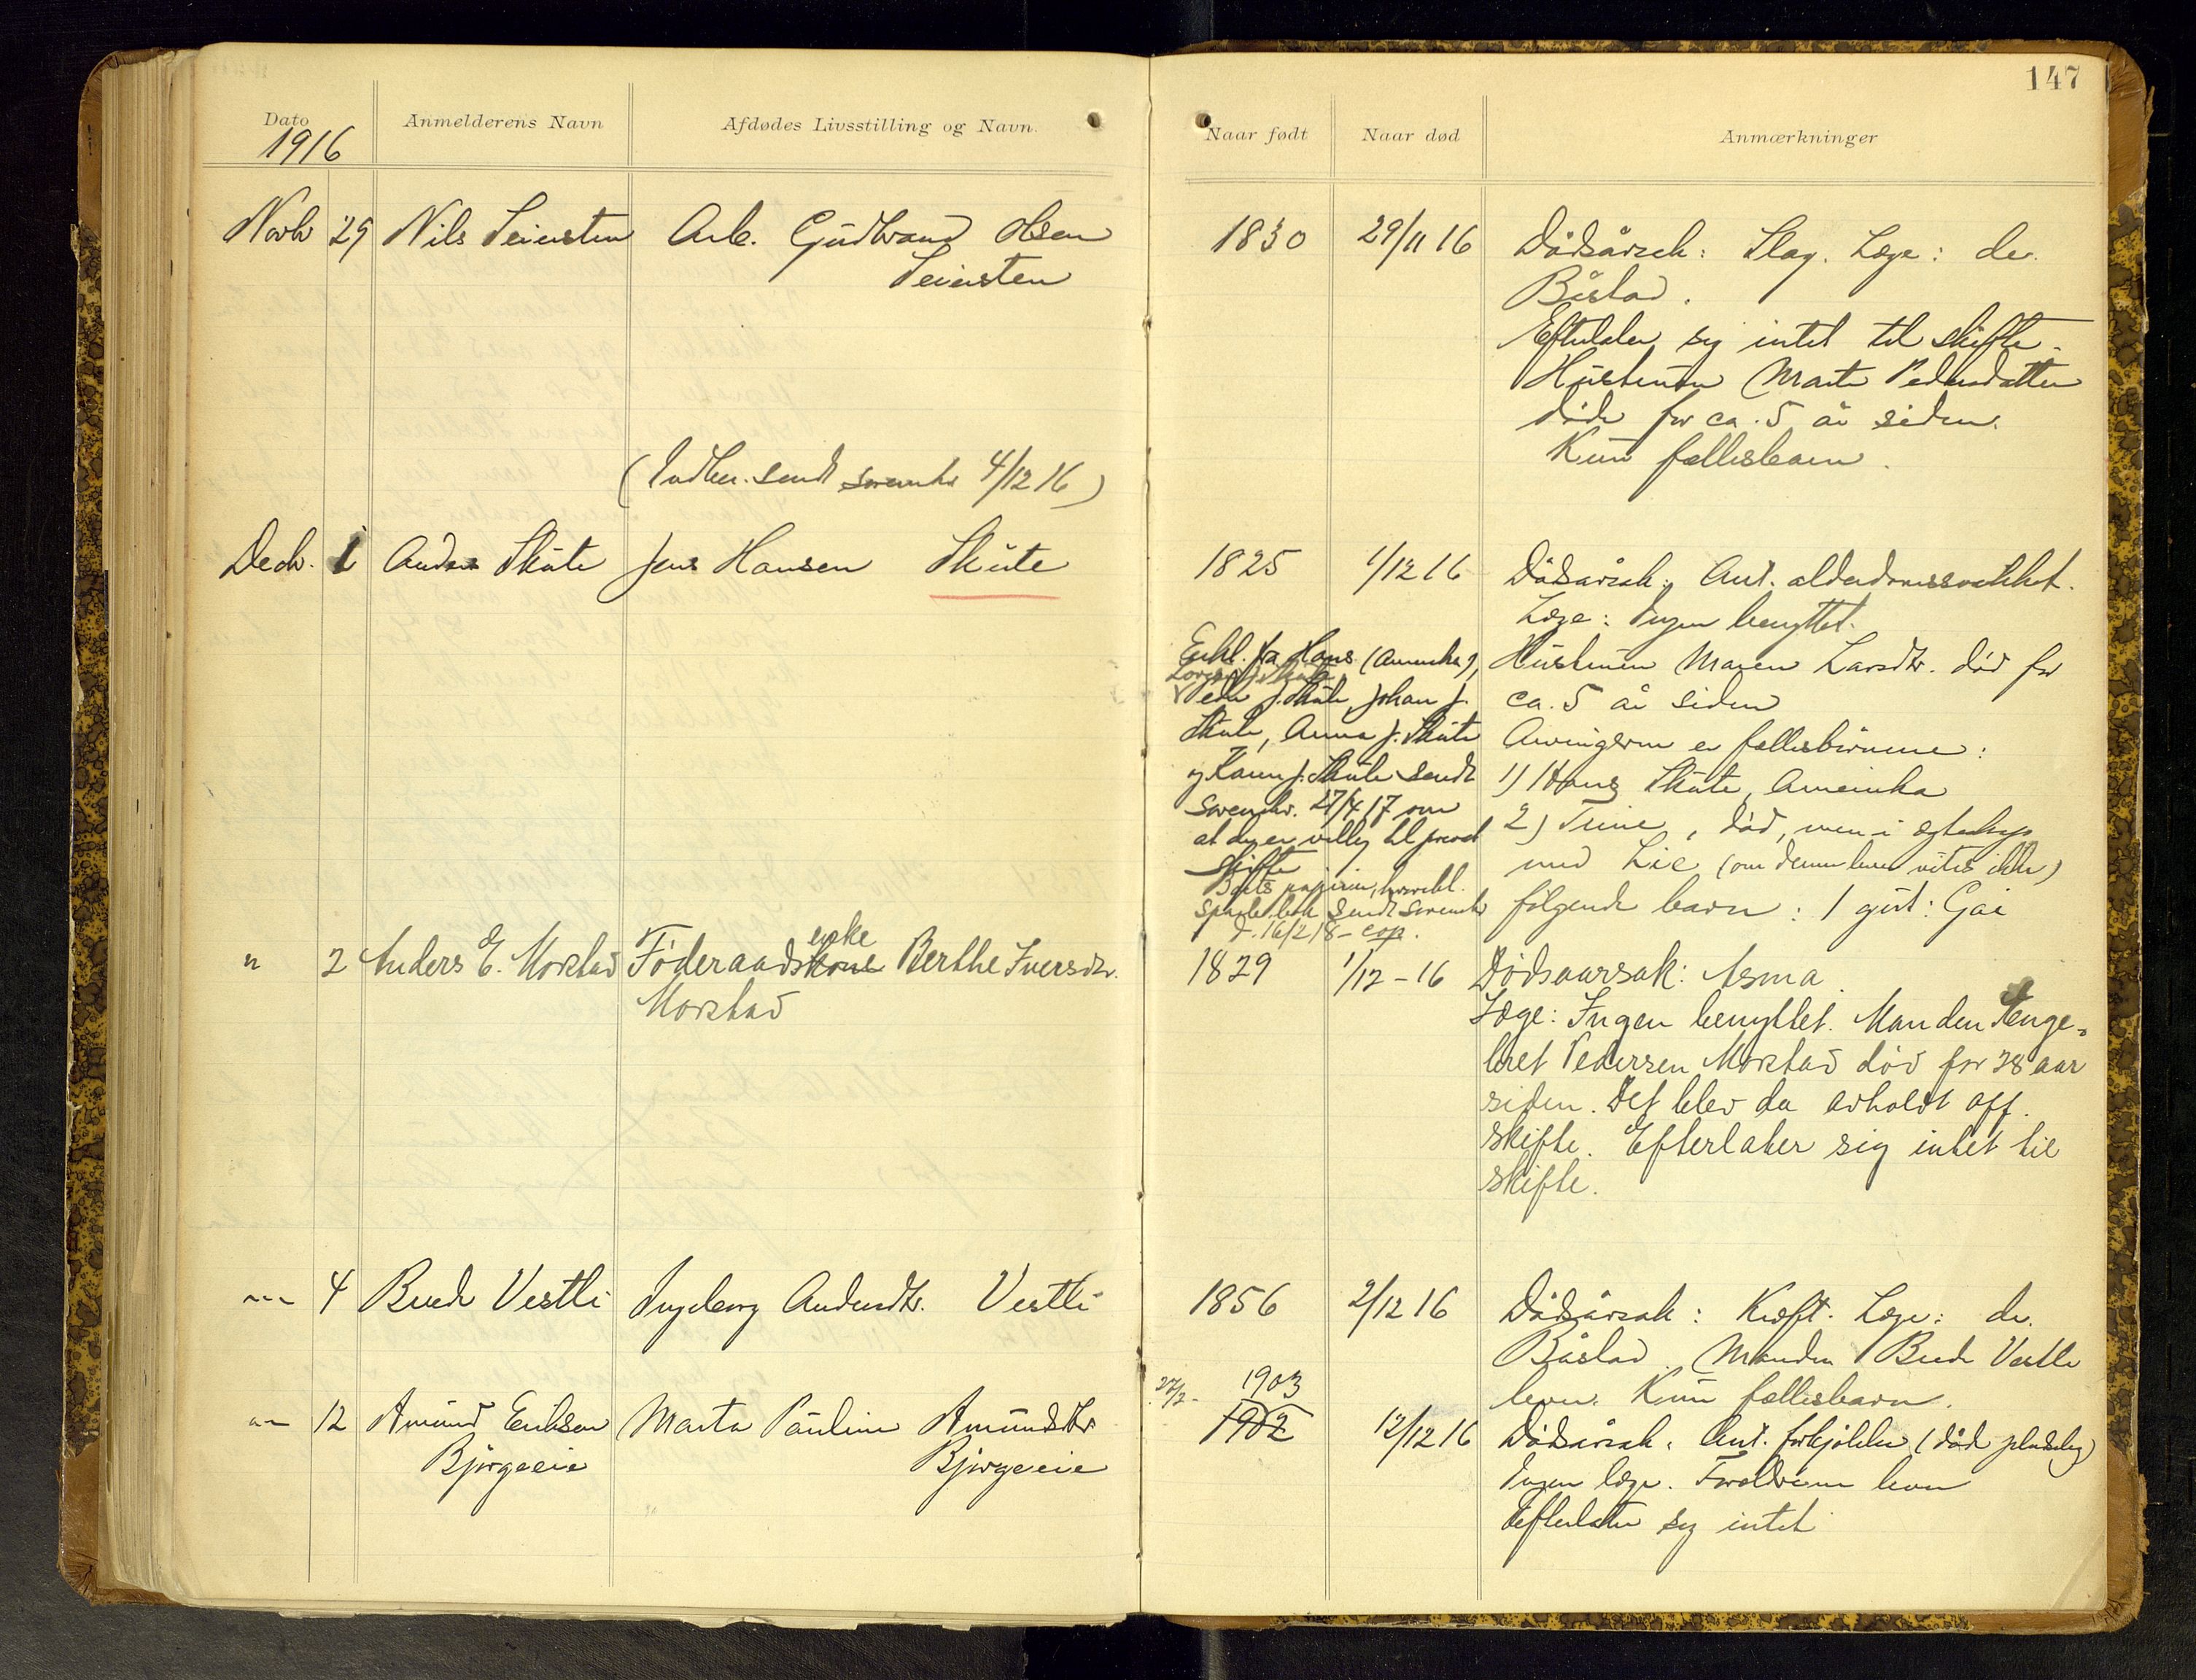 147
Dato
1916
Anmelderens Navn
Afdødes Livsstilling og Navn.
Naar født
Naar død
Anmærkninger
Novbr 29 Nils Seiersten Arb. Gudbrand Olsen
Seiersten
1830 29/11 16 Dødsårsak: Slag. Læge: dr.
Båstad.
Efterlater sig intet til skifte.
Hustruen Marte Pedersdatter
døde for ca. 5 år siden.
Kun fællesbarn.
(Indber. sendt sorenskr 4/12 16)
Decb. 1 Anders Skute Jens Hansen Skute
1825 1/12 16 Dødsårsak: Ant. alderdomssvakhet.
Læge: Ingen benyttet.
Hustruen Maren Larsdtr. død for
ca. 5 år siden
Arvingerne er fællesbørnene:
1) Hans Skute, Amerika
2) Trine, død, men i egteskap
med Lie (om denne lever vites ikke)
følgende barn: 1 gut: Gai
Erkl. fra Hans (Amerika),
Peder J. Skute, Johan J.
Skute, Anna J. Skute
og Karen J. Skute sendt
sorenskr. 27/4 17 om
at de er villig til privat
skifte
Boets papirer,
sparb.bok sendt sorenskr
d. 16/2 18 - cop.
" 2 Anders E. Morstad Føderaadskone enke Berthe Iversdtr.
Morstad
1829 1/12-16 Dødsaarsak: Asma.
Læge: Ingen benyttet. Manden Enge-
bret Pedersen Morstad død for 28 aar
siden. Det blev da avholdt off.
skifte. Efterlater sig intet til
skifte.
-"- 4 Brede Vestli Ingeborg Andersdtr. Vestli
1856 2/12 16 Dødsårsak: Kræft. Læge: dr.
Båstad. Manden Brede Vestli
lever. Kun fællesbarn.
-"- 12 Amund Eriksen Marta Pauline Amundsdtr
Bjørgeeie Bjørgeeie
27/2- 1903
1902 12/12 16 Dødsårsak: Ant. forkjølelse (død pludselig)
Ingen læge. Forældrene lever
Efterlater sig intet